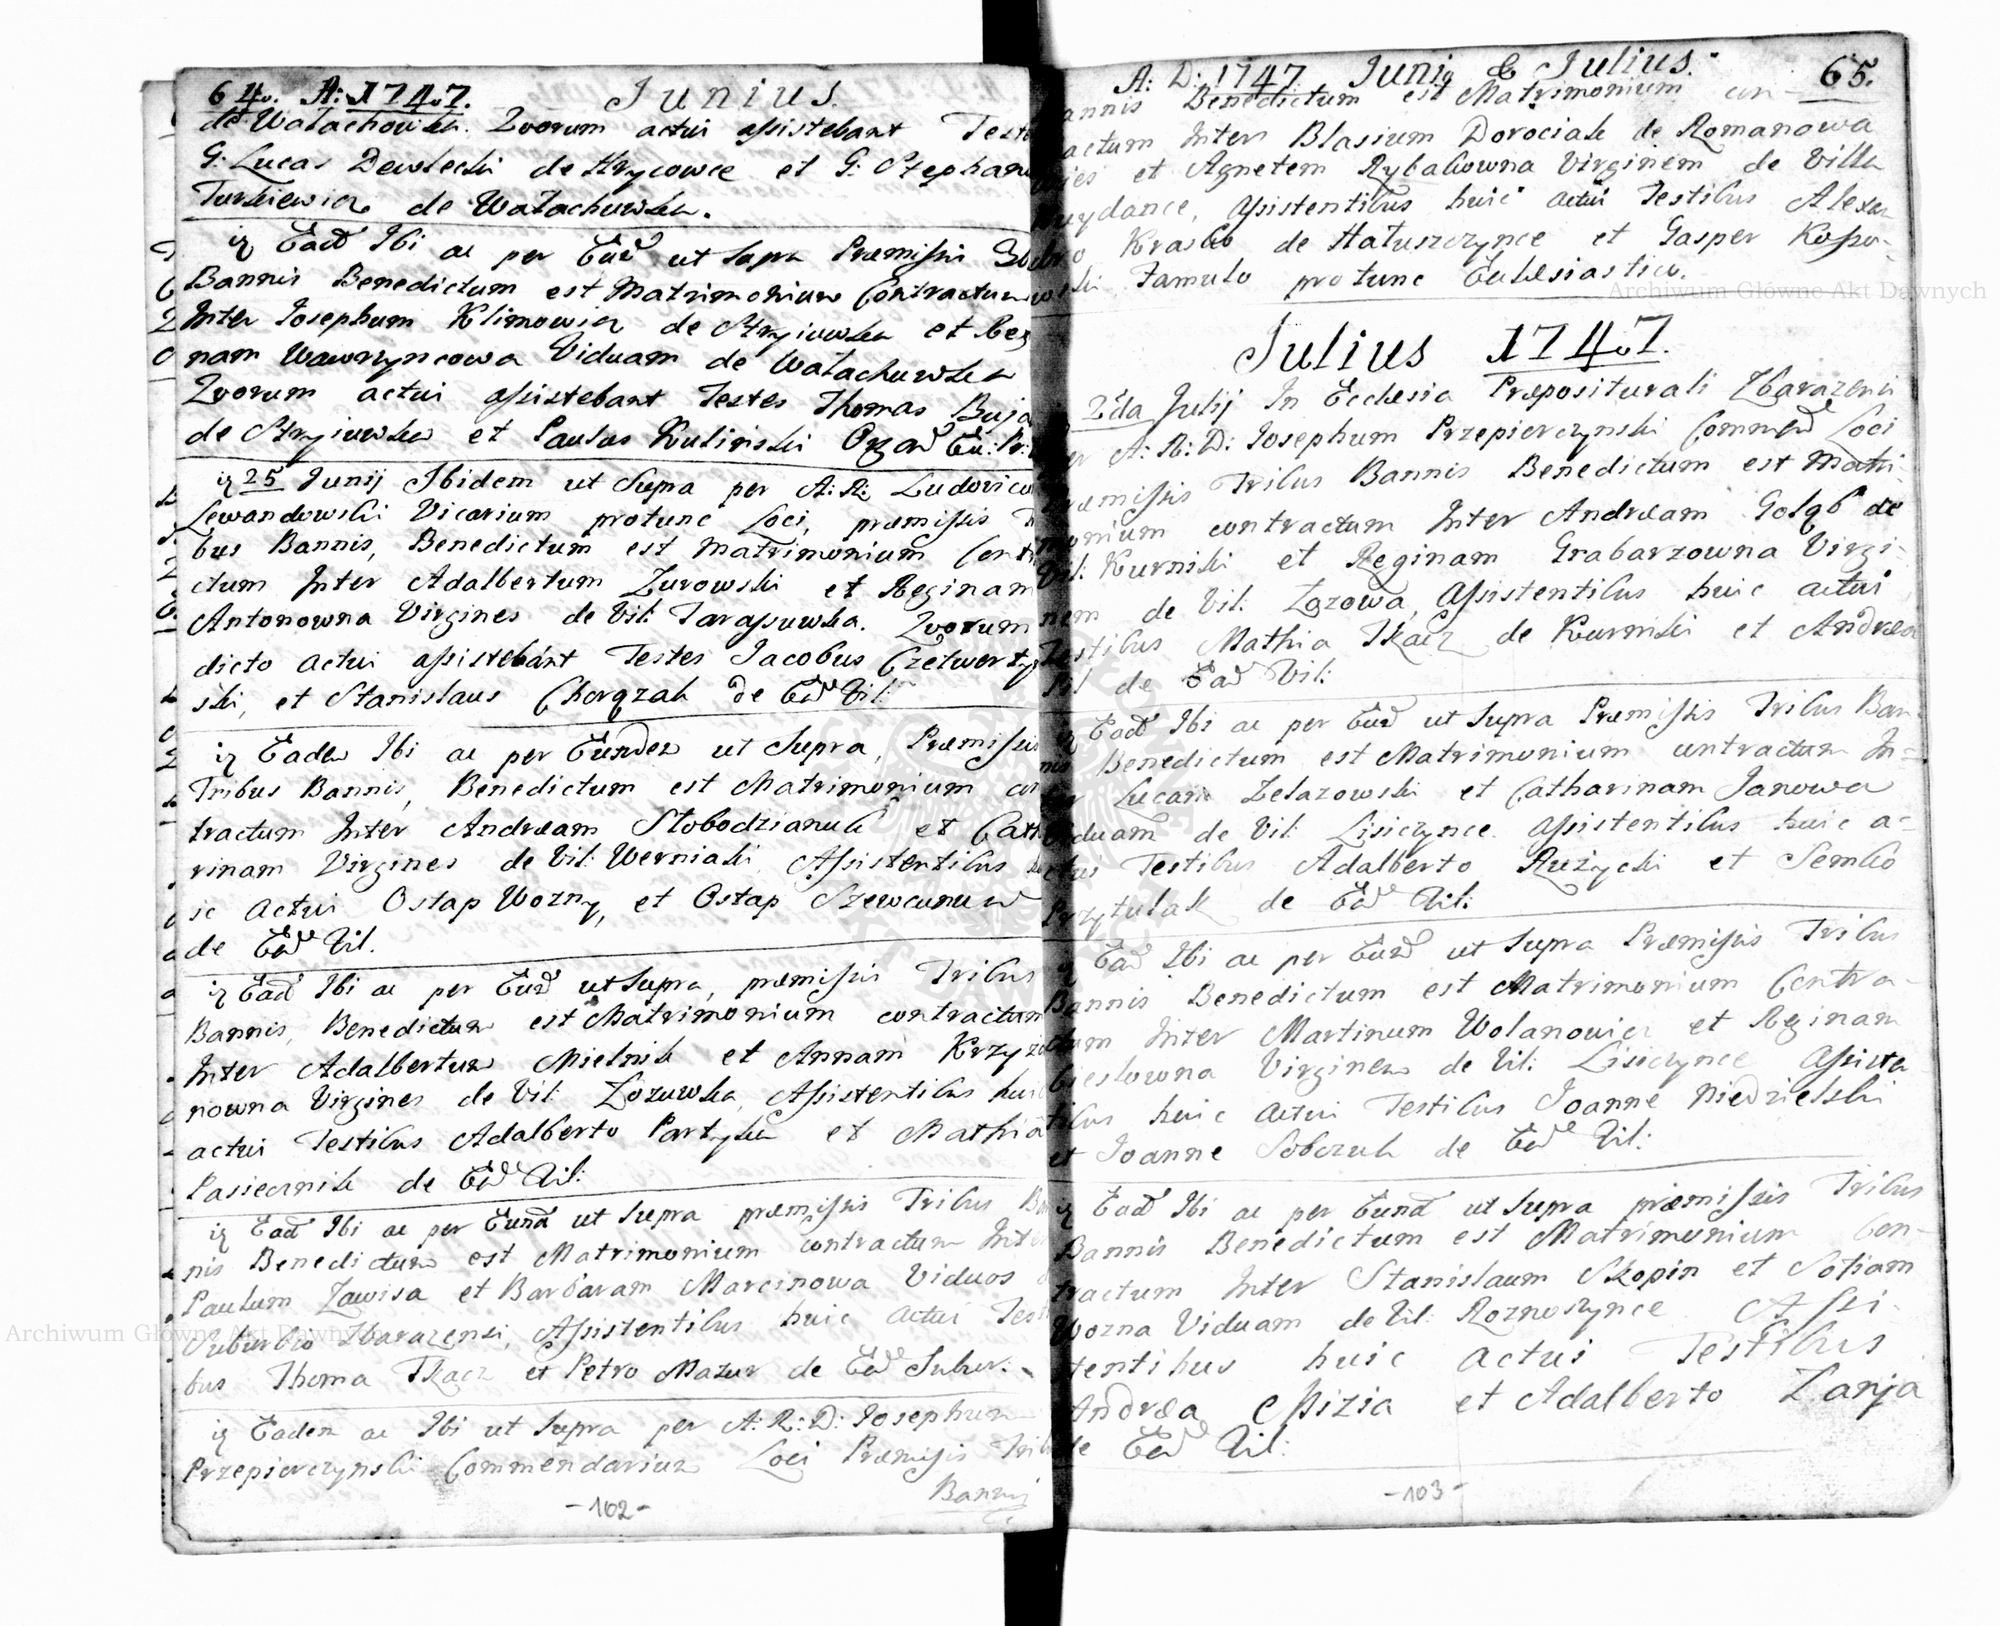 64. A: 1747. Junius.
de Watachowka. Quorum actui assistebant Test
G: Lucas Dewlecki de Hrycowce et G: Stephan
Turkiewicz de Watachuwka.
iz Ead Ibi ac per Eud ut Supra Præmissis
Bannis Benedictum est Matrimonium Contractum
Inter Josephum Klimowicz de Stryiuwka et Reg
nam Wawrzyncowa Viduam de Watachuwka
Quorum actui assistebant Testes Thomas Buja
de Stryiuwka et Paulus Kulinski
iz 25 Junij Ibidem ut Supra per A: R: Ludovicu
Lewandowski Vicarium protunc Loci, præmissis
bus Bannis, Benedictum est Matrimonium Contr
ctum Inter Adalbertum Zurowski et Reginam
Antonowna Virgines de Vil: Tarassuwka. Quorum
dicto actui assistebant Testes Jacobus Czetwerty
ski, et Stanislaus Chorązak de Ead Vil:
iz Eadem Ibi ac per Eundem ut Supra, Præmissis
Tribus Bannis, Benedictum est Matrimonium con
tractum Inter Andræam Slobodzianuk et Cath
rinam Virgines de Vil: Werniaki, Assistentibus
ic actui Ostap Wozny, et Ostap
de Ead Vil.
iz Ead Ibi ac per Eud ut Supra, præmissis Tribus
Bannis, Benedictum est Matrimonium contractum
Inter Adalbertum Mielnik et Annam Krzyza
nowna Virgines de Vil: Lozuwka, Assistentibus hui
actui Testibus Adalberto Partyka et Mathia
Pasiecznik de Ead Vil:
iz Ead Ibi ac per Eund ut Supra præmissis Tribus Ba
nis Benedictum est Matrimonium contractum Inter
Paulum Zawisa et Barbaram Marcinowa Viduos
Suburbio Zbarazensi, Assistentibus huic actui Testi
bus Thoma Tkacz et Petro Mazur de Ead Subur:
iz Eadem ac Ibi ut Supra per A: R: D: Josephum
Przepierczynski Commendarium Loci Præmissis Trib
Bannis
-102-
A: D: 1747. Junig & Julius. 65.
annis Benedictum est Matrimonium con-
actum Inter Blasium Dorociak de Romanowa
et Agnetem Rybakowna Virginem de Villa
uydance, assistentibus huic actui Testibus Alexan
Krasko de Hatuszczynce et Gasper Kosso-
ski Famulo protunc Ecclesiastico.
Julius 1747.
2da Julij In Ecclesia Præpositurali Zbarazensi
er A: R: D: Josephum Przepierczynski Commend Loci
ræmissis Tribus Bannis Benedictum est Matri-
monium contractum Inter Andræam Gołąb de
Vil: Kurniki et Reginam Grabarzowna Virgi-
nem de Vil: Lozowa, Assistentibus huic actui
Testibus Mathia Tkacz de Kurniki et Andræa
de Ead Vil:
iz Ead Ibi ac per Eud ut Supra Præmissis Tribus Ban-
nis Benedictum est Matrimonium contractum In=
ter Lucam Zelazowski et Catharinam Janowa
Viduam de Vil: Lisiczynce. Assistentibus huic a=
ctui Testibus Adalberto Rużycki et Semko
Przytulak de Ead Vil:
iz Ead Ibi ac per Eud ut Supra Præmissis Tribus
Bannis Benedictum est Matrimonium Contra-
ctum Inter Martinum Wolanowicz et Reginam
Cieslowna Virginem de Vil: Lisiczynce Assiste
tibus huic actui Testibus Joanne Niedzielski
et Joanne Sobczuk de Ead Vil:
iz Ead Ibi ac per Eund ut Supra præmissis Tribus
Bannis Benedictum est Matrimonium Con-
tractum Inter Stanislaum Skopin et Sofiam
Wozna Viduam de Vil: Roznoszynce Assi-
tentibus huic actui Testibus
Andræa Misizia et Adalberto Zarija
de Ead Vil:
-103-
Archiwum Główne Akt Dawnych
Archiwum Główne Akt Dawnych